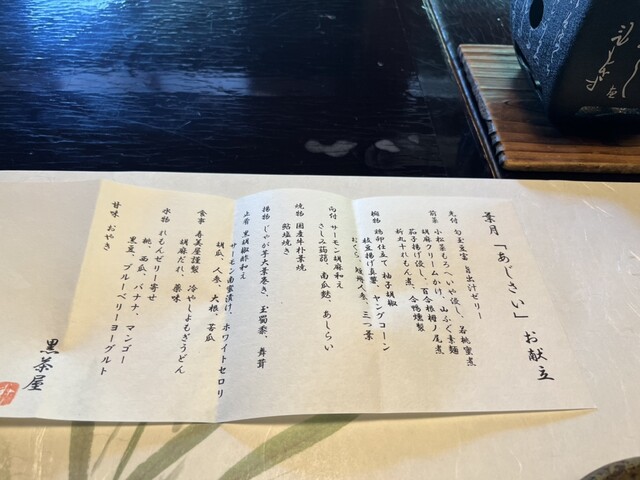 葉月「あじさい」 お献立
先付 旬玉豆富 旨出汁ゼリー
小松菜もってのほか浸し、若桃蜜煮
前菜 胡麻クリームかけ、山ふぐ素麺
茄子揚げ浸し、百合根梅ノ尾煮
新丸十れもん煮、合鴨燻製
椀物 鶏卵仕立て 柚子胡椒
枝豆揚げ真薯、ヤングコーン
人参、三つ葉
向付 サーモン胡麻和え
さしみ蒟蒻、南瓜麩、あしらい
焼物 国産牛朴葉焼
鮎塩焼き
揚物 じゃが芋大葉巻き、玉蜀黍、舞茸
止肴 黒胡椒酢和え
サーモン南蛮漬け、ホワイトセロリ
胡瓜、人参、大根、苦瓜
食事 寿美屋謹製 冷やしよもぎうどん
胡麻だれ、薬味
水物 れもんゼリー寄せ
桃、西瓜、バナナ、マンゴー
黒豆、ブルーベリーヨーグルト
甘味 おやき
黒茶屋